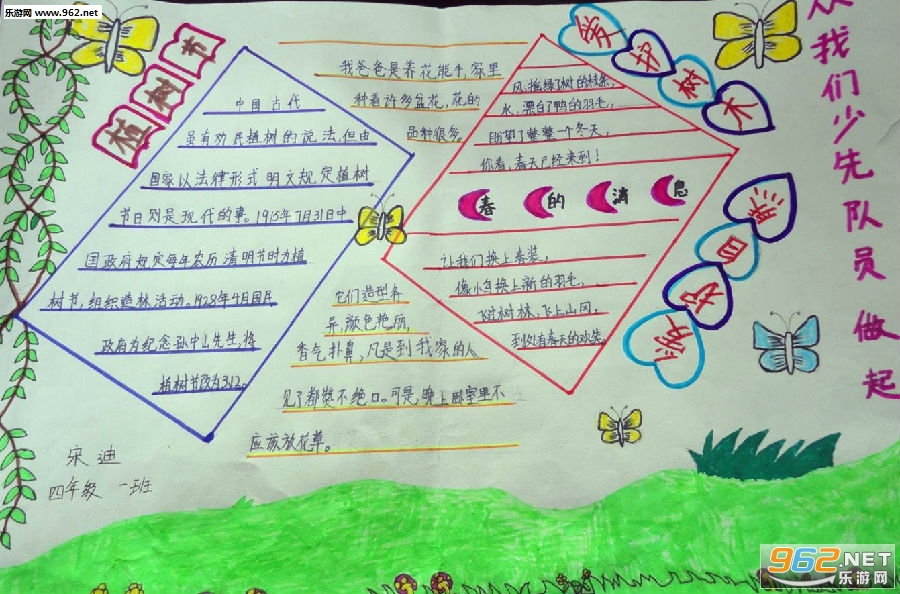 乐游网 www.962.net
植树节
中国古代
虽有劝民植树的说法,但由
国家以法律形式明文规定植树
节日则是现代的事。1915年7月31日中
国政府规定每年农历清明节时为植
树节,组织造林活动。1928年4月国民
政府为纪念孙中山先生,将
植树节改为3.12。
我爸爸是养花能手,家里
种着许多盆花,花的
品种很多,
它们造型各
异,颜色艳丽,
香气扑鼻,凡是到我家的人
见了都赞不绝口。可是,晚上卧室里不
应该放花草。
风,摇绿了树的枝条,
水,漂白了鸭的羽毛,
盼望了整整一个冬天,
你看,春天已经来到!
春的消息
让我们换上春装,
像小鸟换上新的羽毛,
飞过树林,飞上山冈,
到处有春天的欢笑。
爱护树木
从我们少先队员做起
宋迪
四年级 一班
962.NET
乐游网